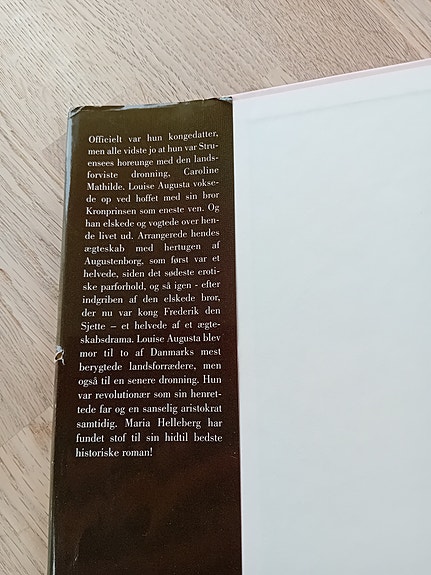 Officielt var hun kongedatter,
men alle vidste jo at hun var Stru-
ensees horeunge med den lands-
forviste dronning, Caroline
Mathilde. Louise Augusta vokse-
de op ved hoffet med sin bror
Kronprinsen som eneste ven. Og
han elskede og vogtede over hen-
de livet ud. Arrangerede hendes
ægteskab med hertugen af
Augustenborg, som først var et
helvede, siden det sødeste eroti-
ske parforhold, og så igen - efter
indgriben af den elskede bror,
der nu var kong Frederik den
Sjette – et helvede af et ægte-
skabsdrama. Louise Augusta blev
mor til to af Danmarks mest
berygtede landsforrædere, men
også til en senere dronning. Hun
var revolutionær som sin henret-
tede far og en sanselig aristokrat
samtidig. Maria Helleberg har
fundet stof til sin hidtil bedste
historiske roman!